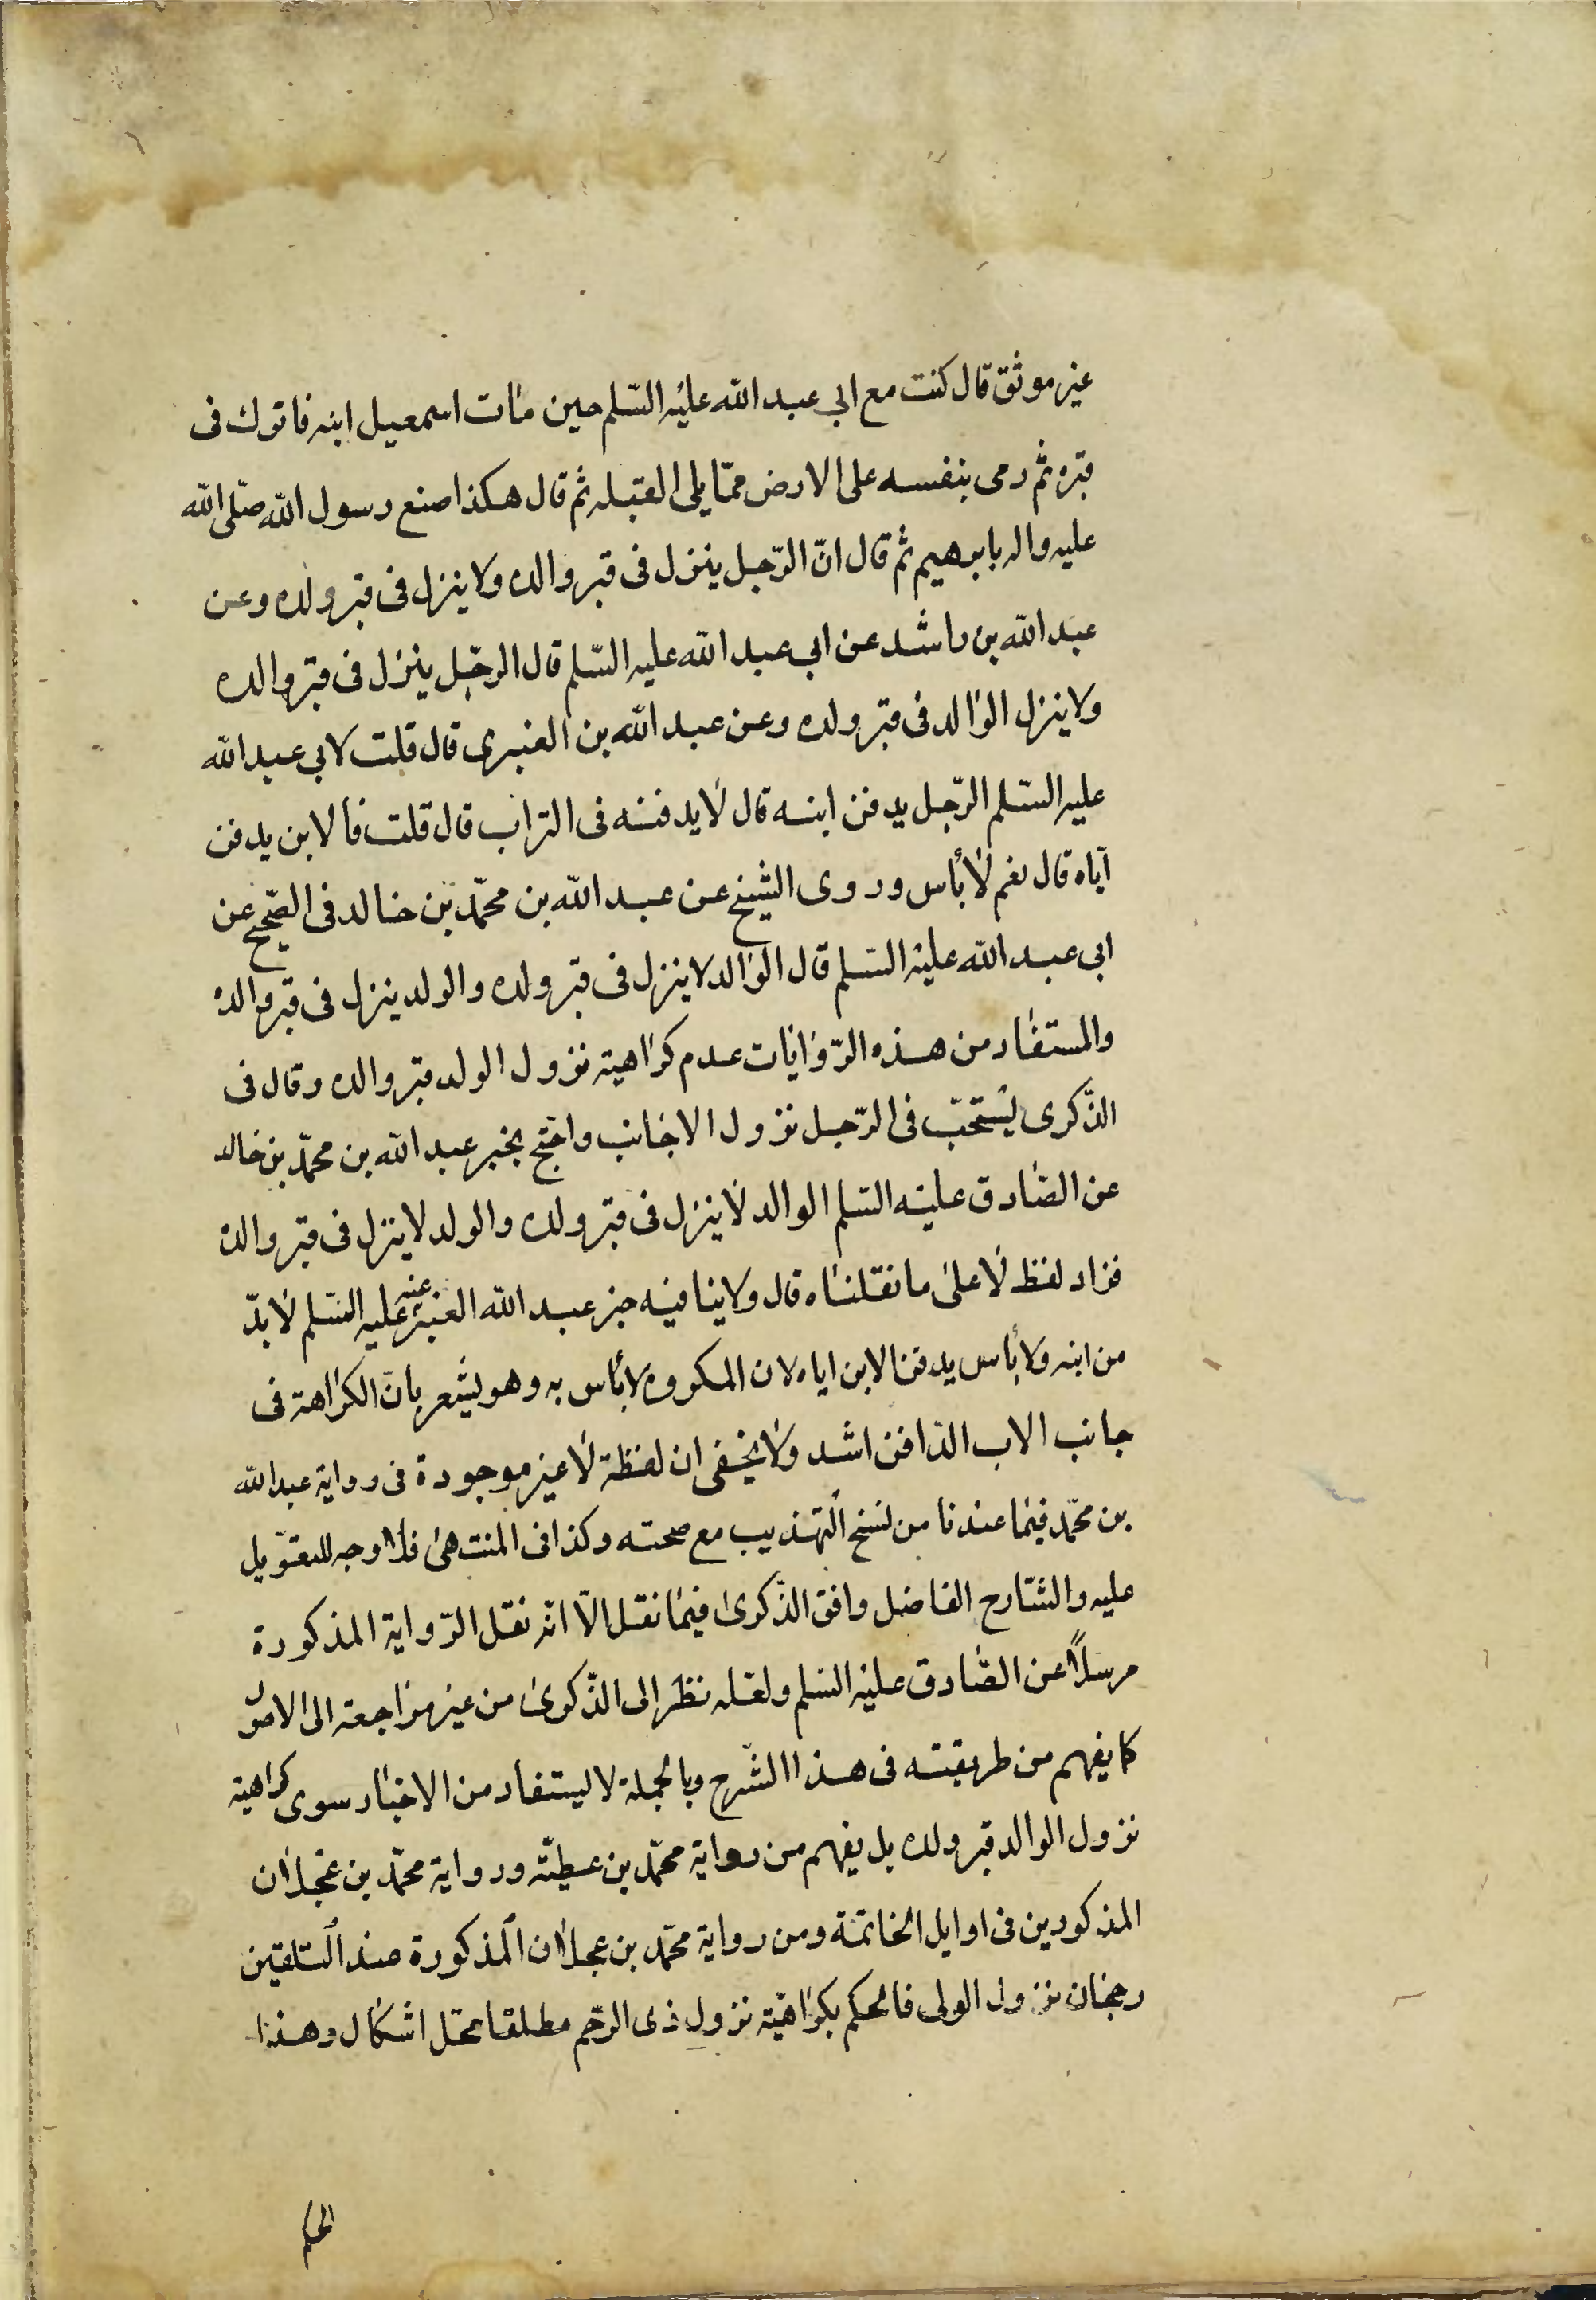 غير موثق قال كنت مع ابي عبد الله عليه السّلم حين مات اسمعيل ابنه فاتوك فى
قبره ثم رمى بنفسه على الارض ممّا يلى القبله ثم قال هكذا صنع رسول الله صلّى الله
عليه واله بابرهيم ثم قال انّ الرّجل ينزل فى قبر والده ولا ينزل فى قبر ولده وعن
عبد الله بن راشد عن ابي عبد الله عليه السّلم قال الرجل ينزل فى قبر والده
ولا ينزل الوالد فى قبر ولده وعن عبد الله بن العنبرى قال قلت لابي عبد الله
عليه السّلم الرّجل يدفن ابنه قال لا يدفنه فى التراب قال قلت فالابن يدفن
اياه قال نعم لا بأس وروى الشيخ عن عبد الله بن محمّد بن خالد فى الصّحيح عن
ابى عبد الله عليه السّلم قال الوالد لا ينزل فى قبر ولده والولد ينزل فى قبر والده
والمستفاد من هذه الرّوايات عدم كراهية نزول الولد قبر والده وقال فى
الذّكرى يستحبّ فى الرّجل نزول الاجانب واحتج بخبر عبد الله بن محمّد بن خالد
عن الصّادق عليه السّلم الوالد لا ينزل فى قبر ولده والولد لا ينزل فى قبر والده
فزاد لفظ لا على ما نقلناه قال ولا ينافيه خبر عبد الله العنبرى عنه عليه السّلم لا يدّ
من ابنه ولا بأس يدفن الابن اياه لان المكروه لا بأس به وهو يشعر بان الكراهة فى
جانب الاب الدّافن اشد ولا يخفى ان لفظة لا غير موجودة فى رواية عبد الله
بن محمّد فيما عندنا من نسخ التهذيب مع صحته وكذا فى المنتهى فلا وجه للتعويل
عليه والشّارح الفاضل وافق الذّكرى فيما نقل الّا انّه نقل الرّواية المذكورة
مرسلًا عن الصّادق عليه السّلم ولعله نظر الى الذّكرى من غير مراجعة الى الاصول
كما يفهم من طريقته فى هذا الشّرح وبالجملة لا يستفاد من الاخبار سوى كراهية
نزول الوالد قبر ولده بل يفهم من رواية محمّد بن عطيّة ورواية محمّد بن عجلان
المذكورين فى اوايل الخاتمة ومن رواية محمّد بن عجلان المذكورة عند التلقين
رجحان نزول الولى فالحكم بكراهية نزول ذى الرّحم مطلقا محل اشكال وهذا
الحكم